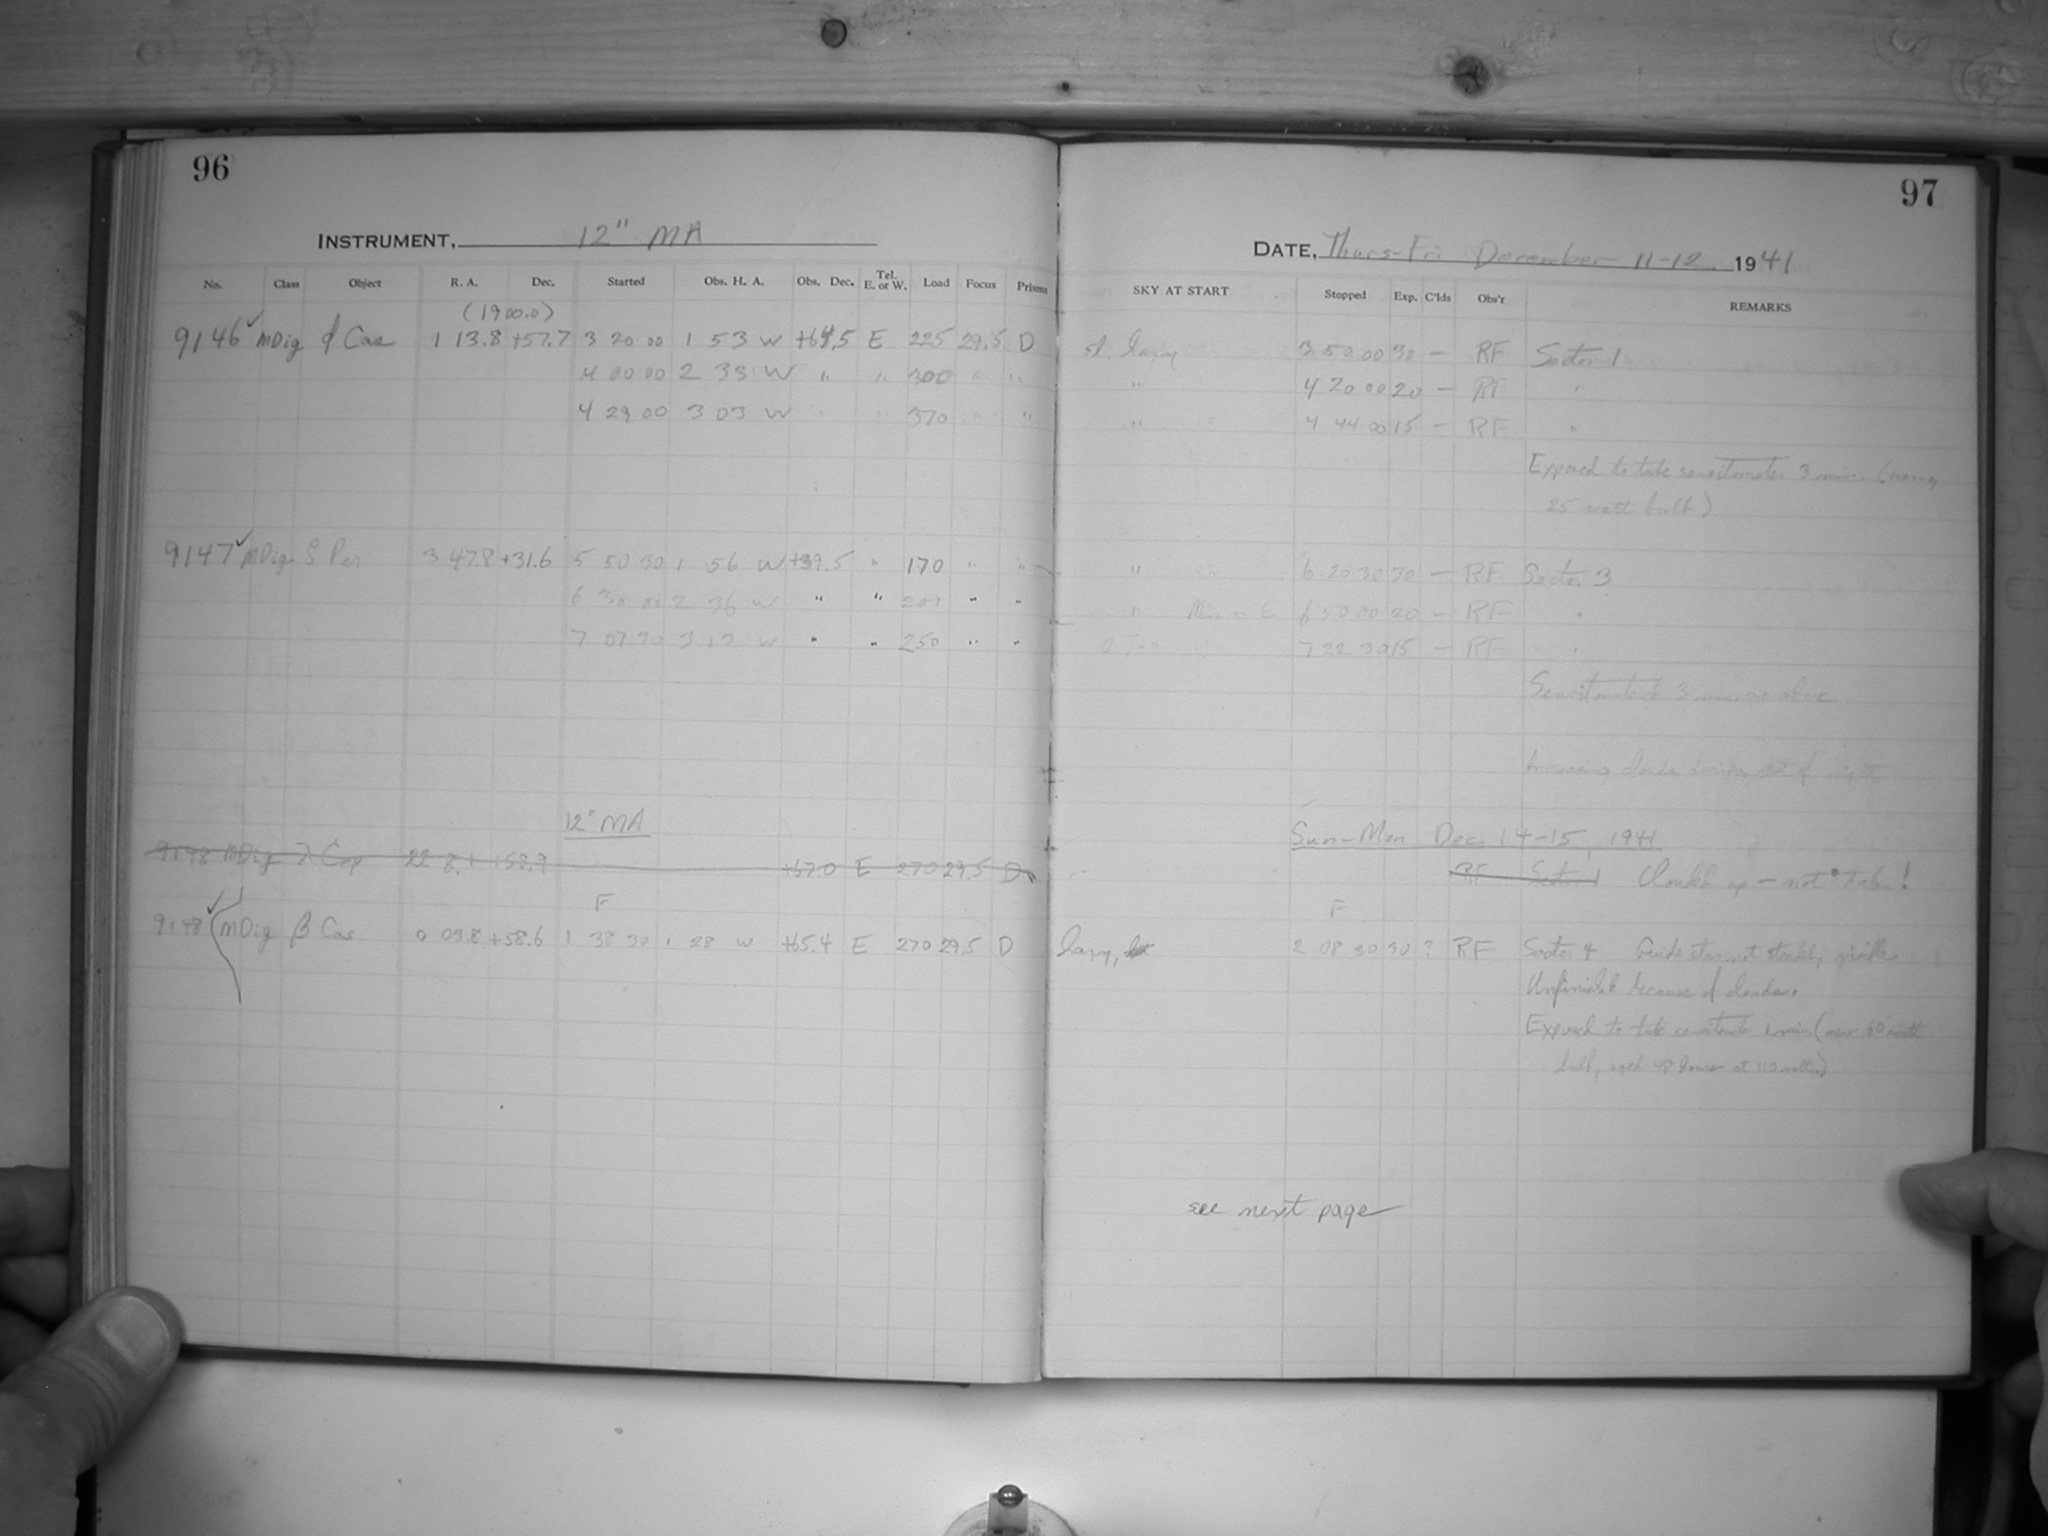 96
INSTRUMENT, 12" MA
No. Class Object R. A. Dec. Started Obs. H. A. Obs. Dec. Tel. E. or W. Load Focus Prisms
(1900.0)
9146 ✓ MDig ϕ Cas 1 13.8 +57.7 3 20 00 1 53 W +64.5 E 225 29.5 D
4 00 00 2 33 W " " 300 " "
4 29 00 3 03 W " " 370 " "
9147 ✓ MDig ζ Per 3 47.8 +31.6 5 50 30 1 56 W +39.5 " 170 " "
6 30 00 2 36 W " " 207 " "
7 07 30 3 13 W " " 250 " "
12" MA
9148 MDig λ Cep 22 8.1 +58.9 +67.0 E 270 29.5 D
F
9148 ✓ MDig β Cas 0 03.8 +58.6 1 38 30 1 28 W +65.4 E 270 29.5 D
97
DATE, Thurs-Fri December 11-12, 1941
SKY AT START Stopped Exp. C'lds Obs'r REMARKS
sl. hazy 3 50 00 30 — RF Sector 1
" 4 20 00 20 — RF "
" 4 44 00 15 — RF "
Exposed to take sensitometer 3 min. (using
25 watt bulb)
" 6 20 30 30 — RF Sector 3
" Moon in E 6 50 00 20 — RF "
7 22 30 15 — RF "
3 min. as above
Increasing clouds rest of night
Sun-Mon Dec 14-15, 1941
RF Sector 1 Clouded up — not taken!
F
hazy, 2 08 30 30 ? RF Sector 4 Guide star not steadily visible
Unfinished because of clouds.
Exposed to take 1 min (new 60 watt
bulb, aged 48 hours at 110 volts)
see next page